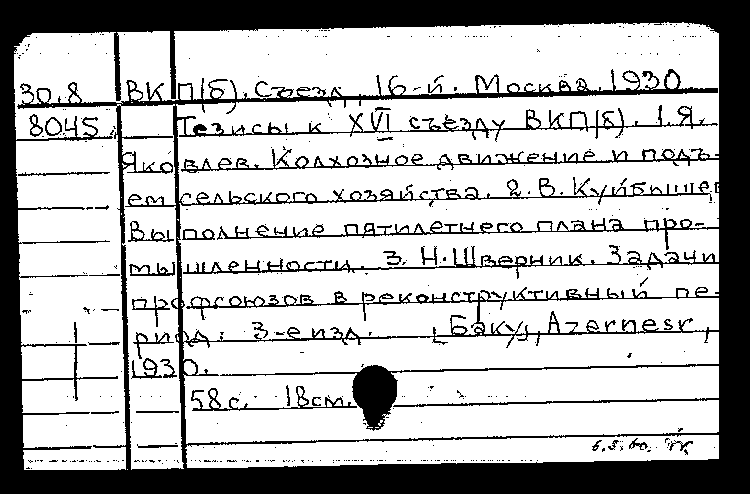 30.8 ВКП(б). Съезд, 16-й. Москва. 1930
8045. Тезисы к XVI съезду ВКП(б). 1. Я.
Яковлев. Колхозное движение и подъ-
ем сельского хозяйства. 2. В. Куйбышев
Выполнение пятилетнего плана про-
мышленности. 3. Н. Шверник. Задачи
профсоюзов в реконструктивный пе-
риод. 3-е изд. [Баку], Azərnəşr,
1930.
58 с. 18 см.
6.5.60.